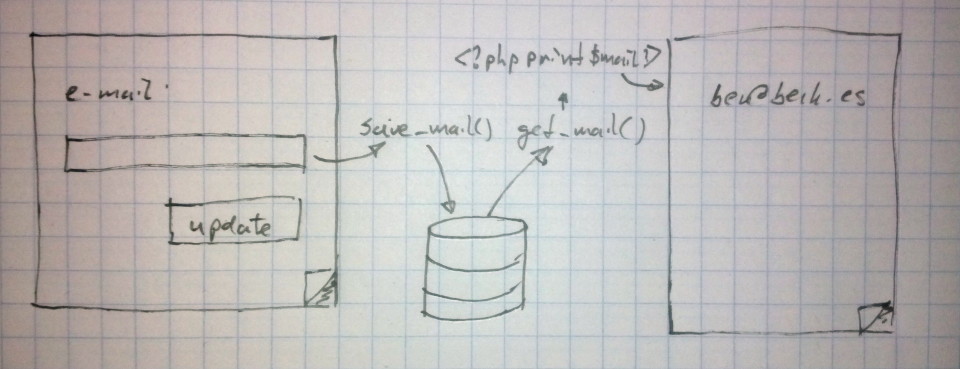 e-mail:
update
save_mail()
get_mail()
<?php print $mail?>
ben@beck.es